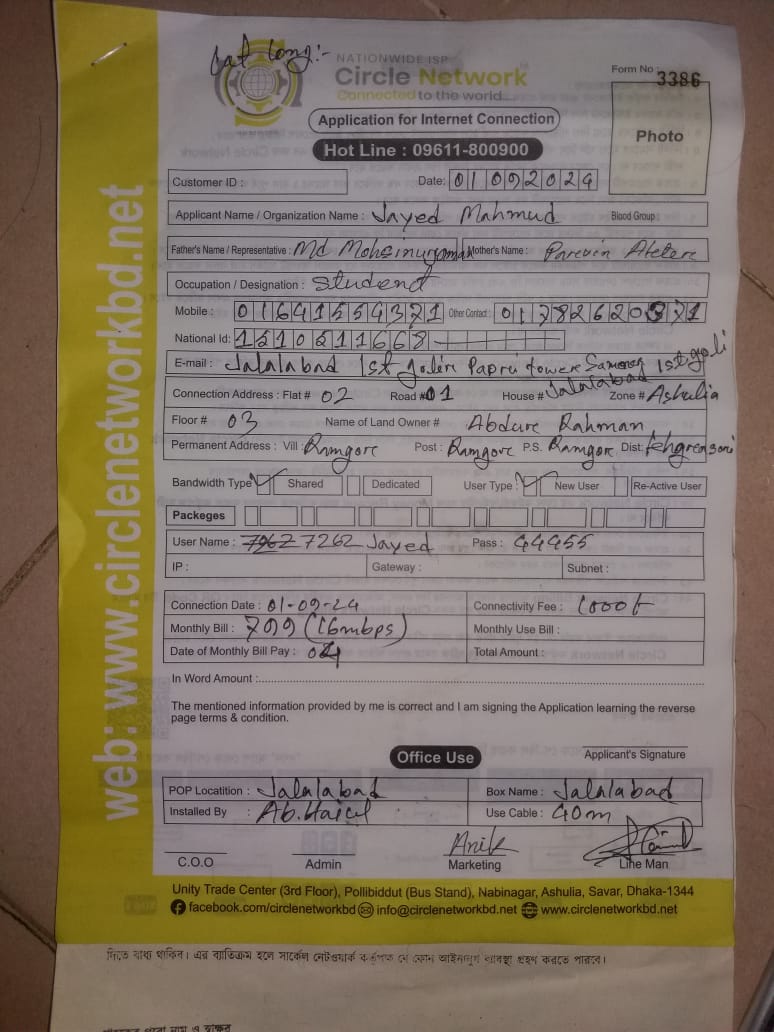 Lat Long:-
NATIONWIDE ISP
Circle Network
Connected to the world...
Form No : 3386
Application for Internet Connection
Photo
Hot Line : 09611-800900
Customer ID :
Date: 01092024
Applicant Name / Organization Name : Jayed Mahmud Blood Group :
Father's Name / Representative : Md Mohsinurjaman Mother's Name : Parevin
Occupation / Designation : Student
Mobile : 01641554371 Other Contact : 01782620371
National Id: 1510511668
E-mail : Jalalabad 1st Papri tower 1st goli
Connection Address : Flat # 02 Road # 01 House # Jalalabad Zone # Ashulia
Floor # 03 Name of Land Owner # Abdure Rahman
Permanent Address : Vill : Ramgore Post : Ramgore P.S. Ramgore Dist:
Bandwidth Type Shared Dedicated User Type : New User Re-Active User
Packeges
User Name : 7262 Jayed Pass : 44455
IP : Gateway : Subnet :
Connection Date : 01-09-24 Connectivity Fee : 1000t
Monthly Bill : 799 (16mbps) Monthly Use Bill :
Date of Monthly Bill Pay : Total Amount :
In Word Amount :
The mentioned information provided by me is correct and I am signing the Application learning the reverse
page terms & condition.
Office Use
Applicant's Signature
POP Locatition : Jalalabad Box Name : Jalalabad
Installed By : Use Cable : 40m
Anik
C.O.O Admin Marketing Line Man
Unity Trade Center (3rd Floor), Pollibiddut (Bus Stand), Nabinagar, Ashulia, Savar, Dhaka-1344
facebook.com/circlenetworkbd info@circlenetworkbd.net www.circlenetworkbd.net
web: www.circlenetworkbd.net
দিতে বাধ্য থাকিব। এর ব্যতিক্রম হলে সার্কেল নেটওয়ার্ক কর্তৃপক্ষ যে কোন আইনানুগ ব্যবস্থা গ্রহণ করতে পারবে।